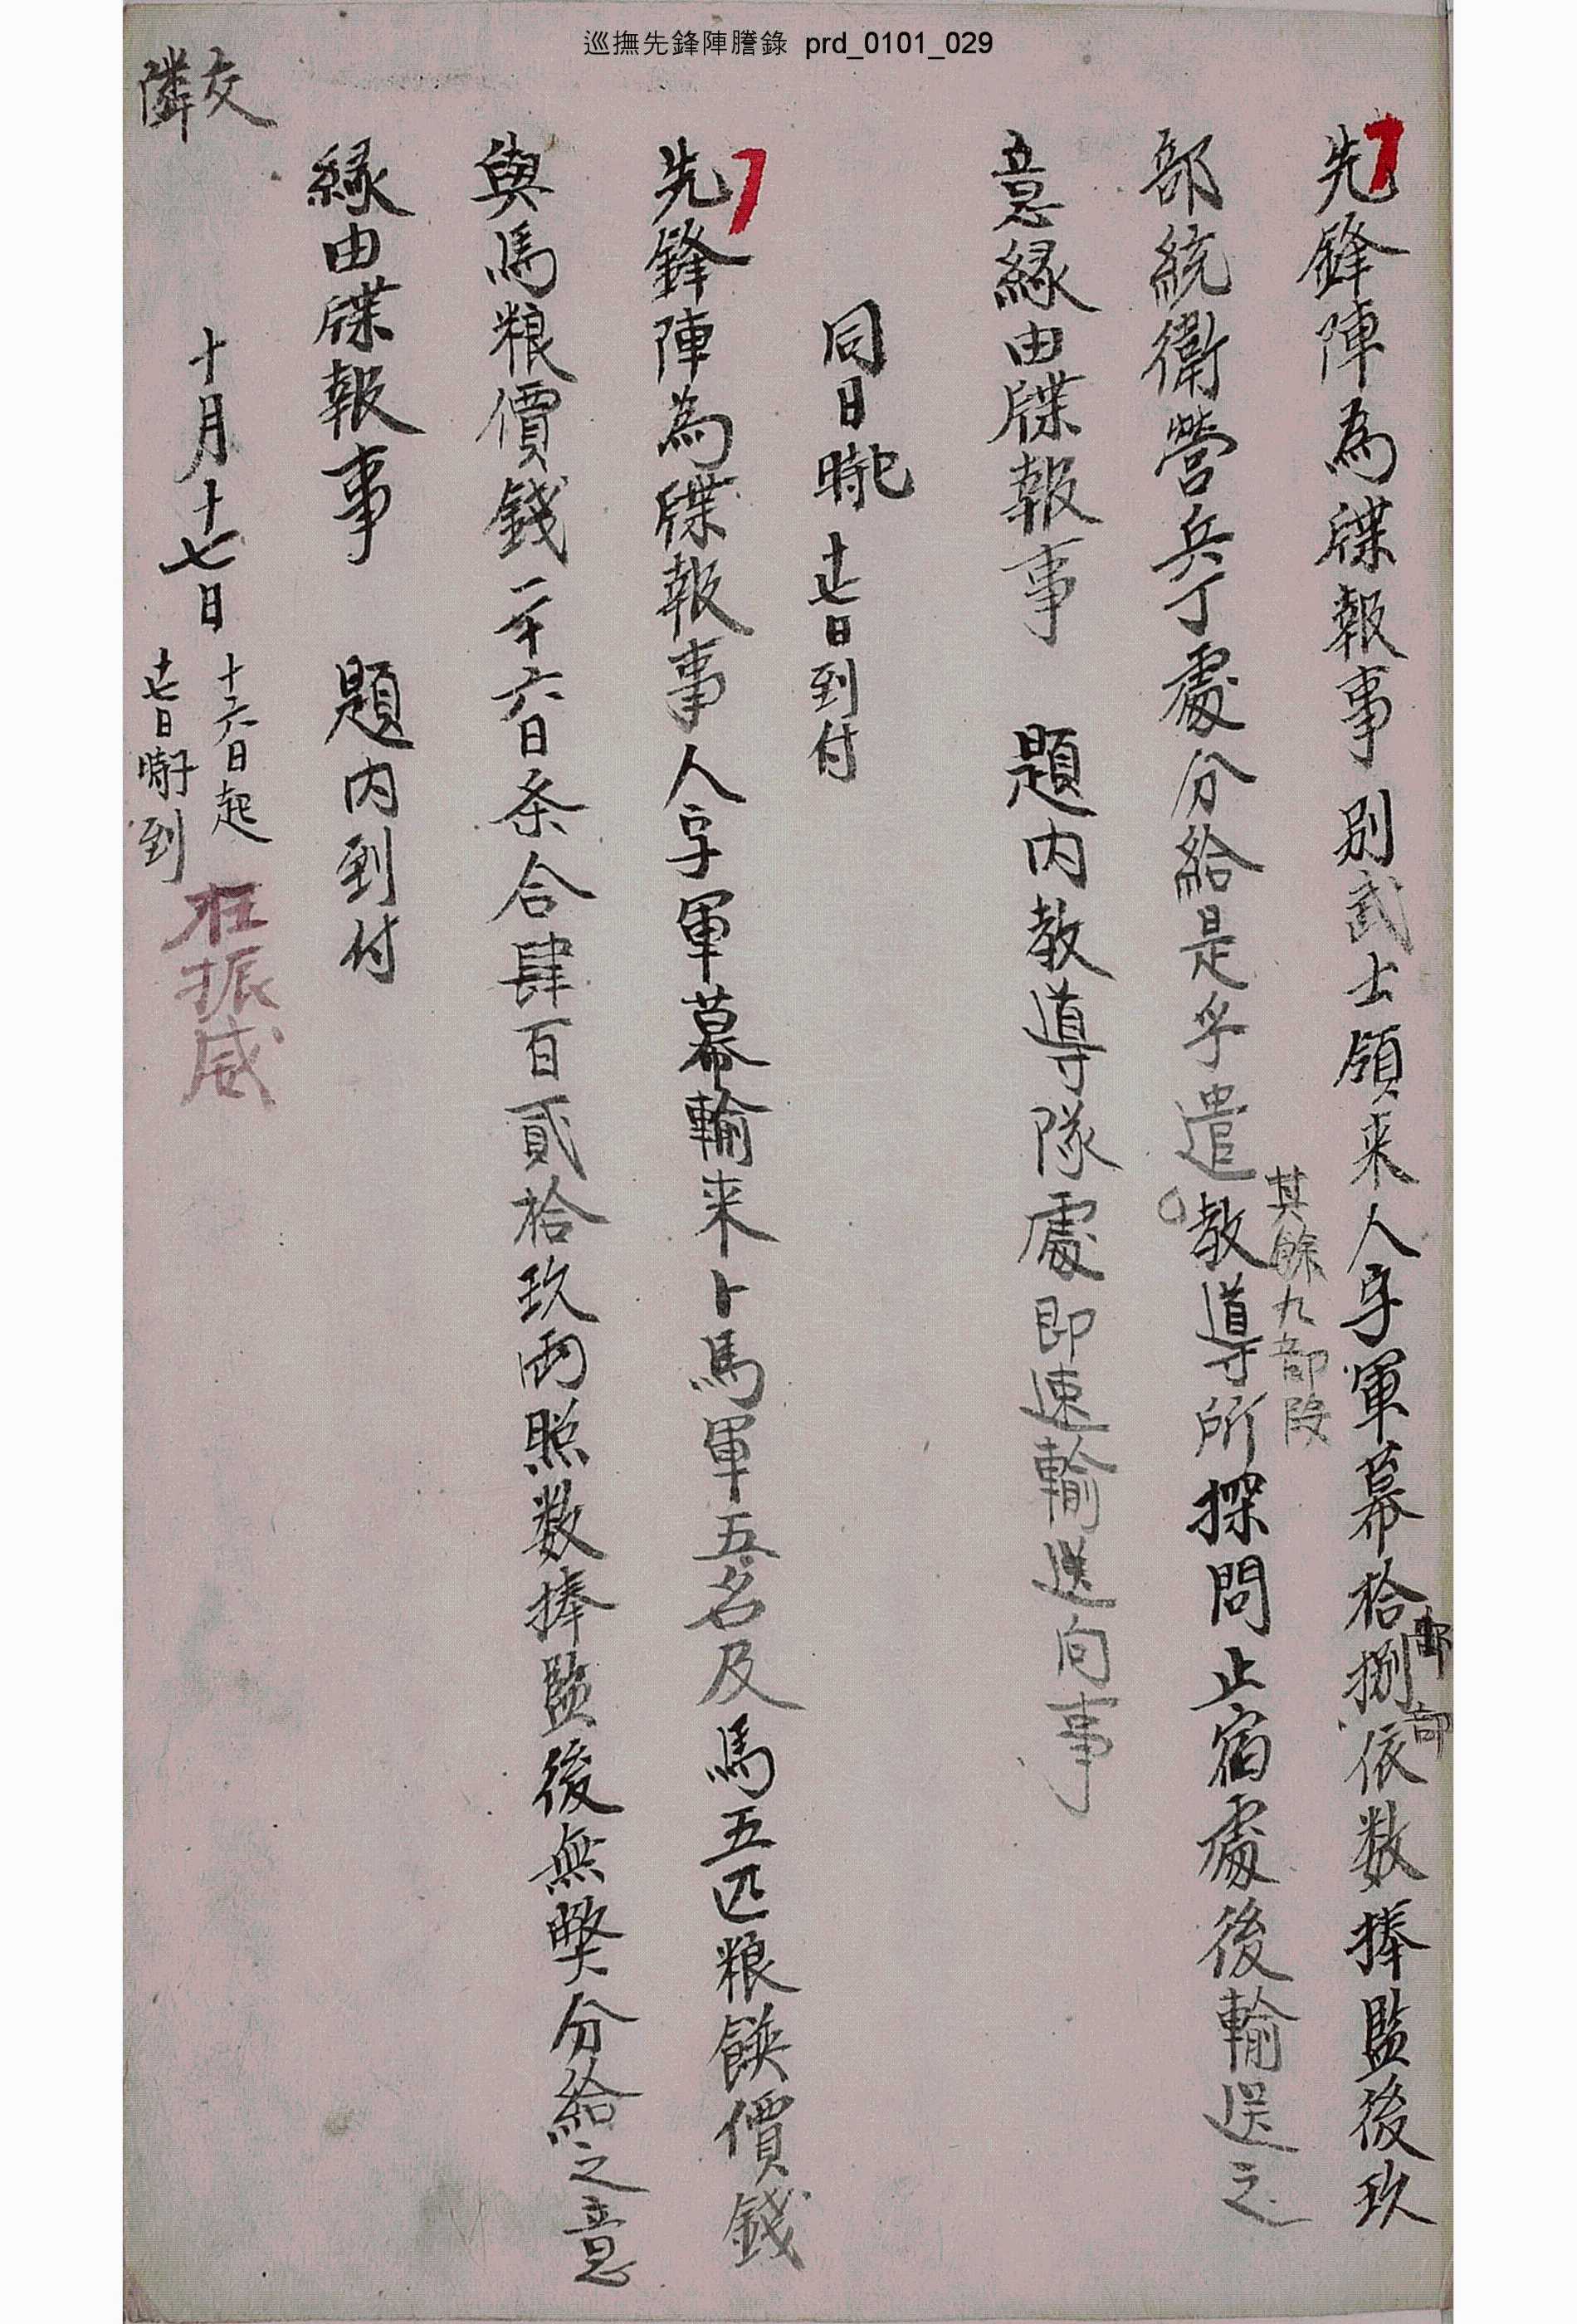 巡撫先鋒陣謄錄 prd_0101_029
先鋒陣為牒報事別武士領来人字軍幕拾捌部依数捧監後玖
部統衛營兵丁處分給是乎遣其餘九部段教導所探問止宿處後輸送之
意緣由牒報事 題內教導隊處即速輸送向事
同日巳時 十七日到付
先鋒陣為牒報事人字軍幕輸来卜馬軍五名及馬五匹粮饌價錢
與馬粮價錢二十六日条合肆百貳拾玖兩照数捧監後無弊分給之意
緣由牒報事 題內到付
十月十七日 十六日起 十七日到 在振威
交隣